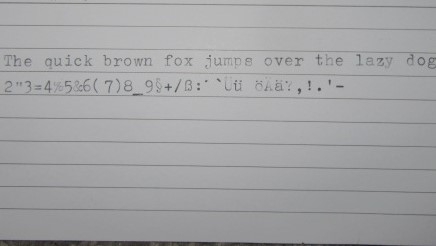 The quick brown fox jumps over the lazy dog
2"3=4%5&6(7)8_9§+/ß:´`Üü öÄä?,!.'-